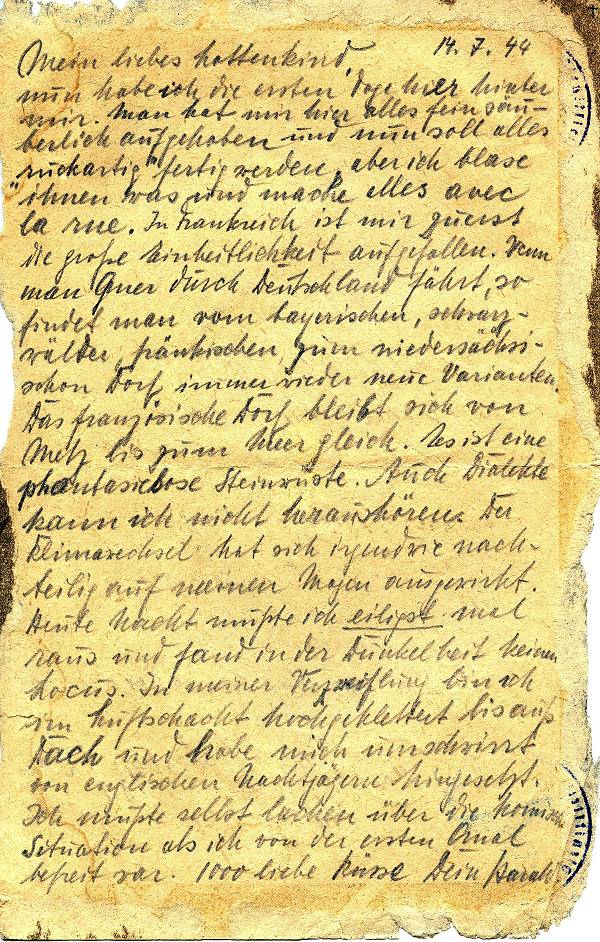 14.7.44
Mein liebes Lottenkind,
nun habe ich die ersten Tage hier hinter
mir. Man hat mir hier alles fein säu-
berlich aufgehoben und nun soll alles
"ruckartig" fertig werden, aber ich blase
ihnen was und mache alles avec
la rue. In Frankreich ist mir zuerst
die große Einheitlichkeit aufgefallen. Wenn
man Quer durch Deutschland fährt, so
findet man vom bayerischen, schwarz-
wälder, fränkischen, zum niedersächsi-
schen Dorf immer wieder neue Varianten.
Das französische Dorf bleibt sich von
Metz bis zum Meer gleich. Es ist eine
phantasielose Steinwüste. Auch Dialekte
kann ich nicht heraushören. Der
Klimawechsel hat sich irgendwie nach-
teilig auf meinen Magen ausgewirkt.
Heute Nacht mußte ich eiligst mal
raus und fand in der Dunkelheit keinen
Locus. In meiner Verzweiflung bin ich
im Luftschacht hochgeklettert bis aufs
Dach und habe mich umschwirrt
von englischen Nachtjägern hingesetzt.
Ich mußte selbst lachen über die komische
Situation als ich von der ersten Qual
befreit war. 1000 liebe Küsse Dein